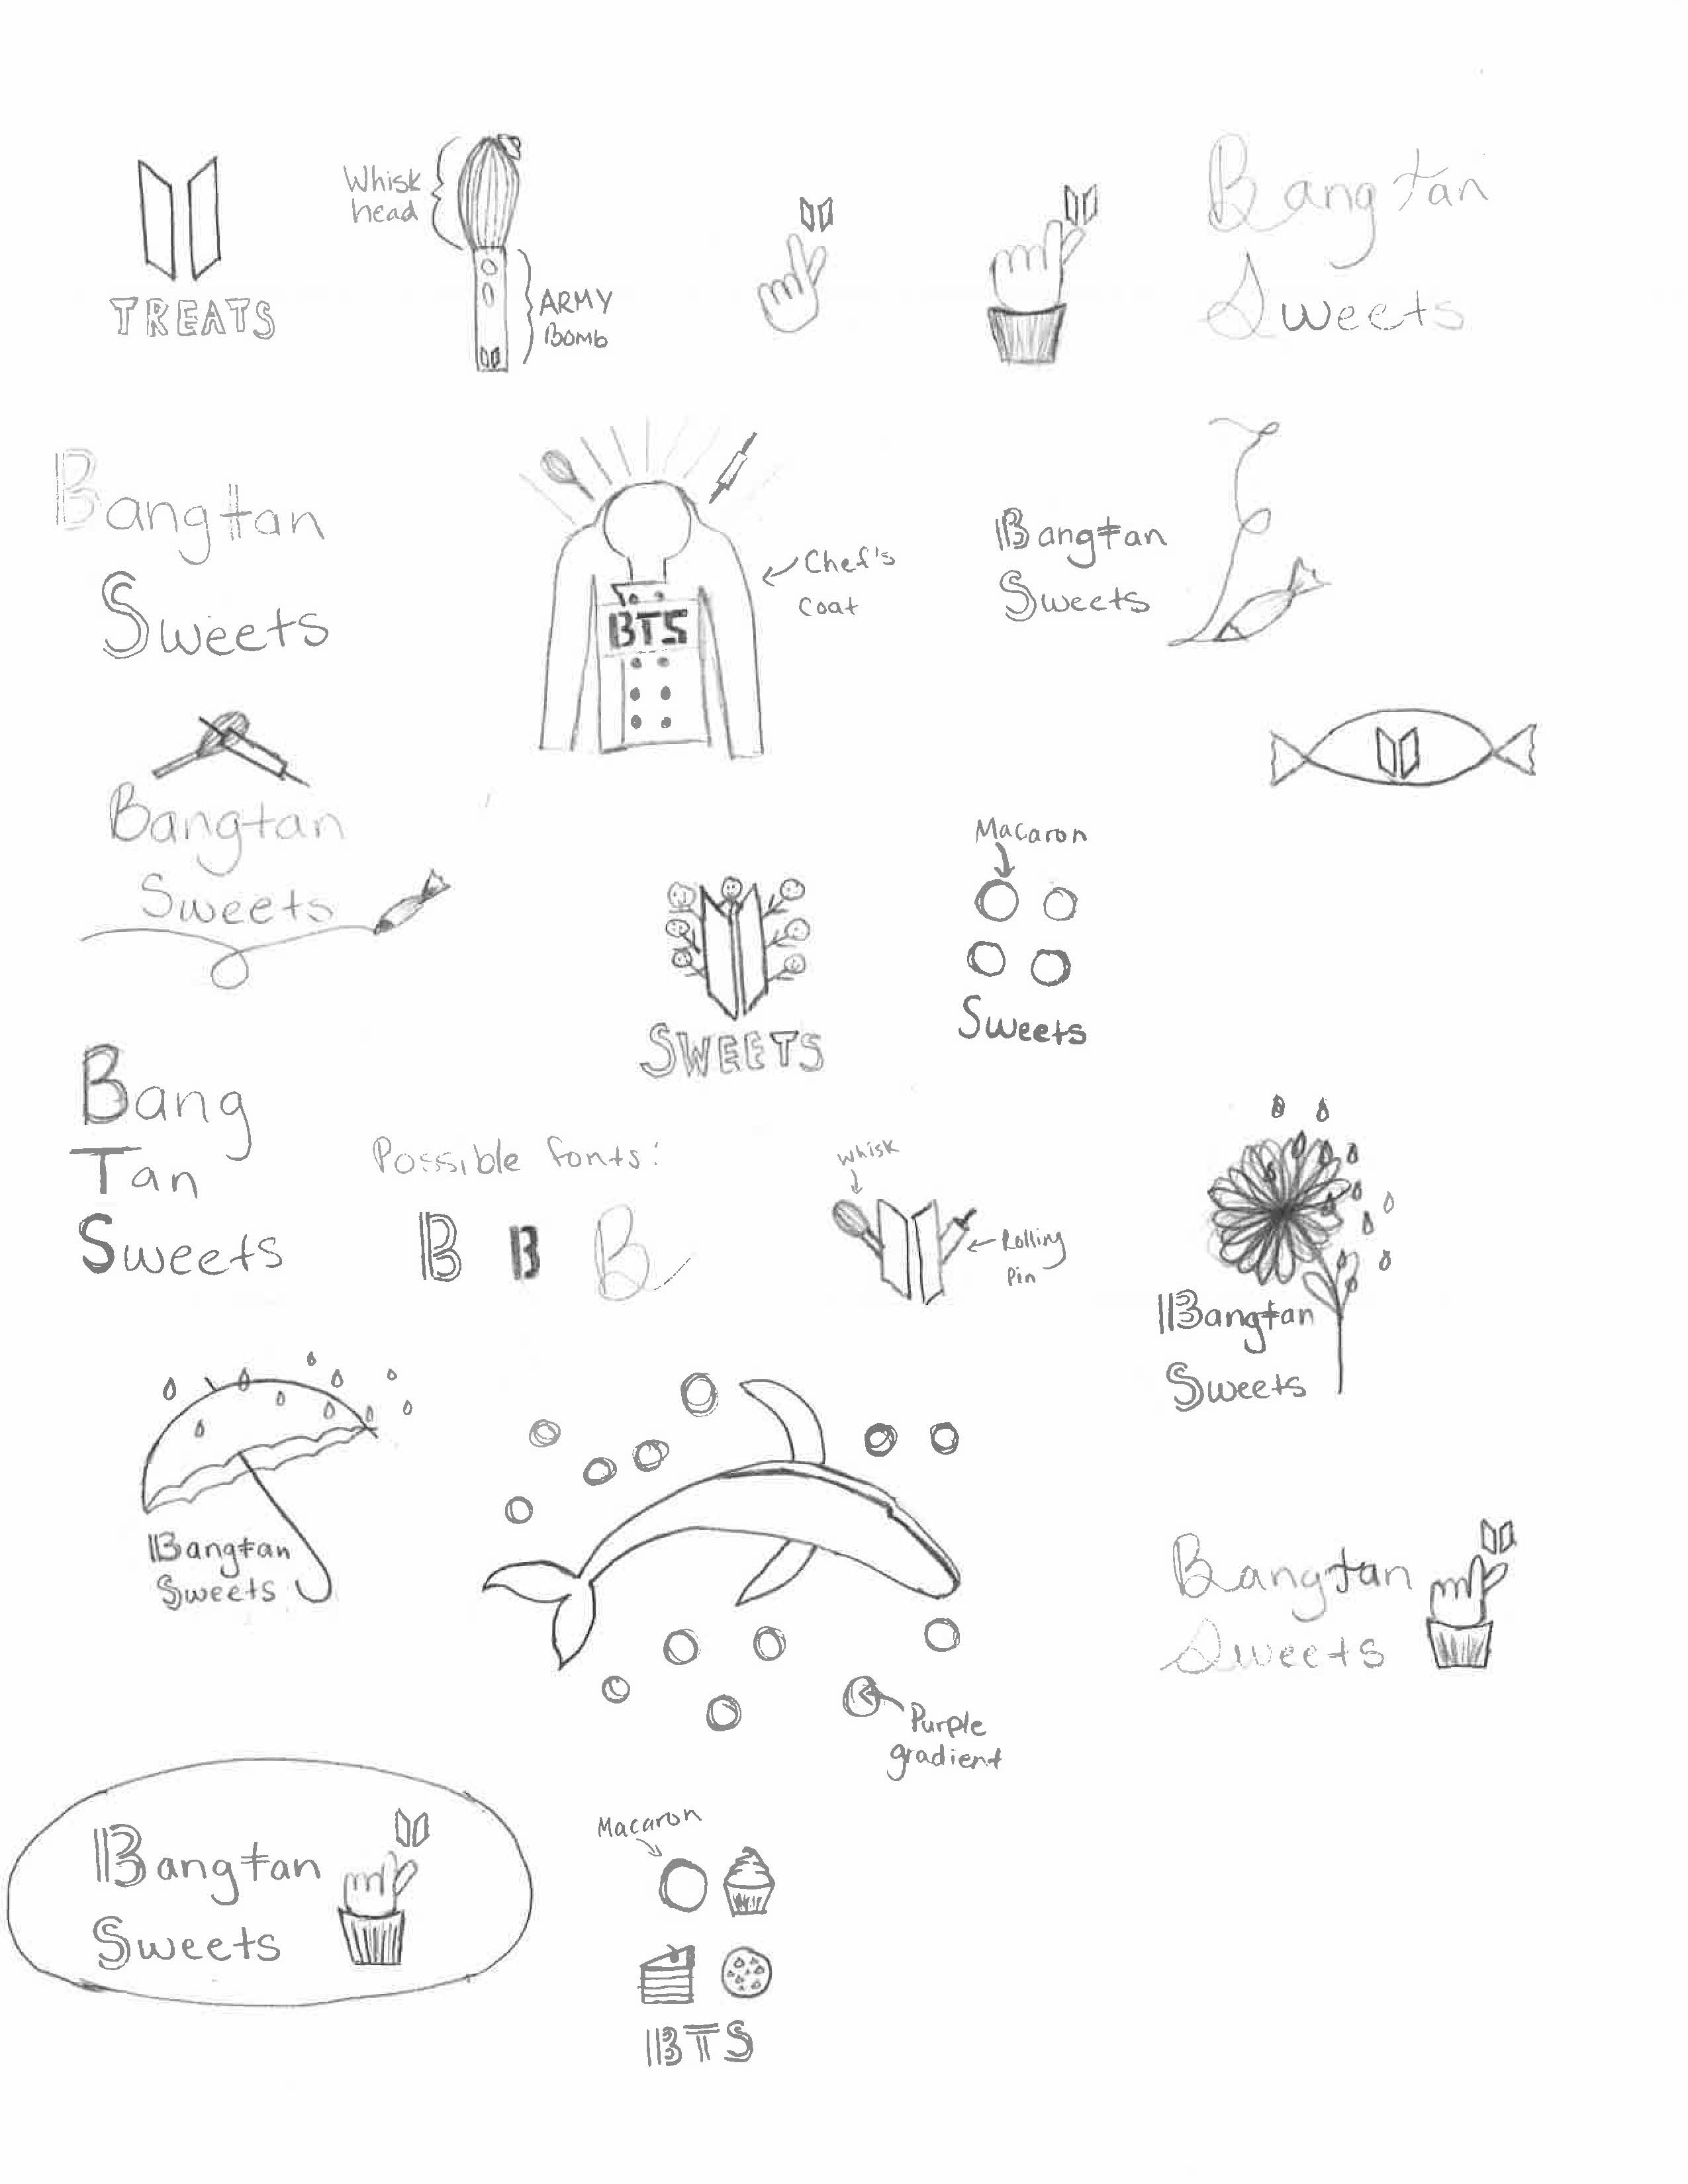 TREATS
Whisk
head
ARMY
Bomb
Bangtan
Sweets
Bangtan
Sweets
BTS
Chef's
Coat
Bangtan
Sweets
Bangtan
Sweets
SWEETS
Macaron
Sweets
Bang
Tan
Sweets
Possible fonts:
B B B
Whisk
Rolling
Pin
Bangtan
Sweets
Bangtan
Sweets
Purple
gradient
Bangtan
Sweets
Bangtan
Sweets
Macaron
BTS